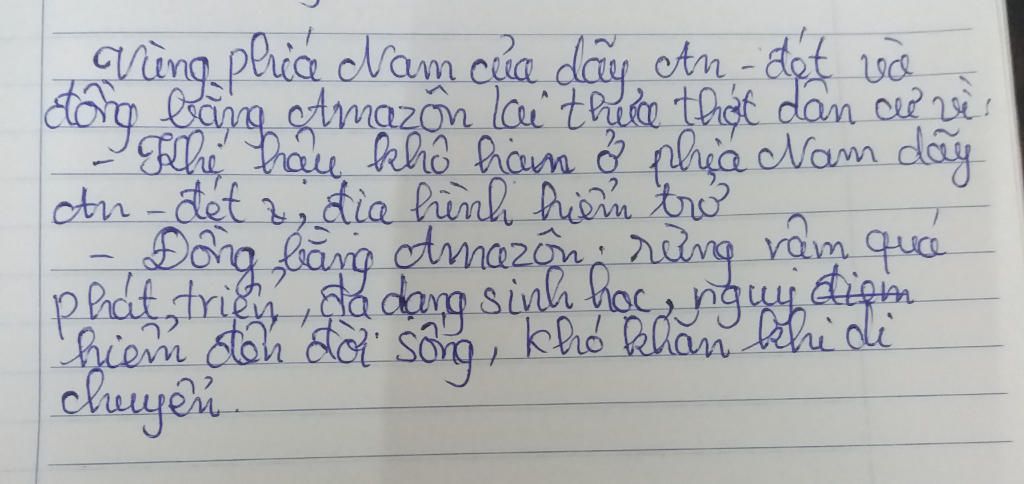 Vùng phía Nam của dãy An-đét và
đồng bằng Amazôn lại thưa thớt dân cư vì:
- Khí hậu khô hạn ở phía Nam dãy
An-đét, địa hình hiểm trở
- Đồng bằng Amazôn: rừng rậm quá
phát triển, đa dạng sinh học, nguy điểm
hiểm đến đời sống, khó khăn khi di
chuyển.